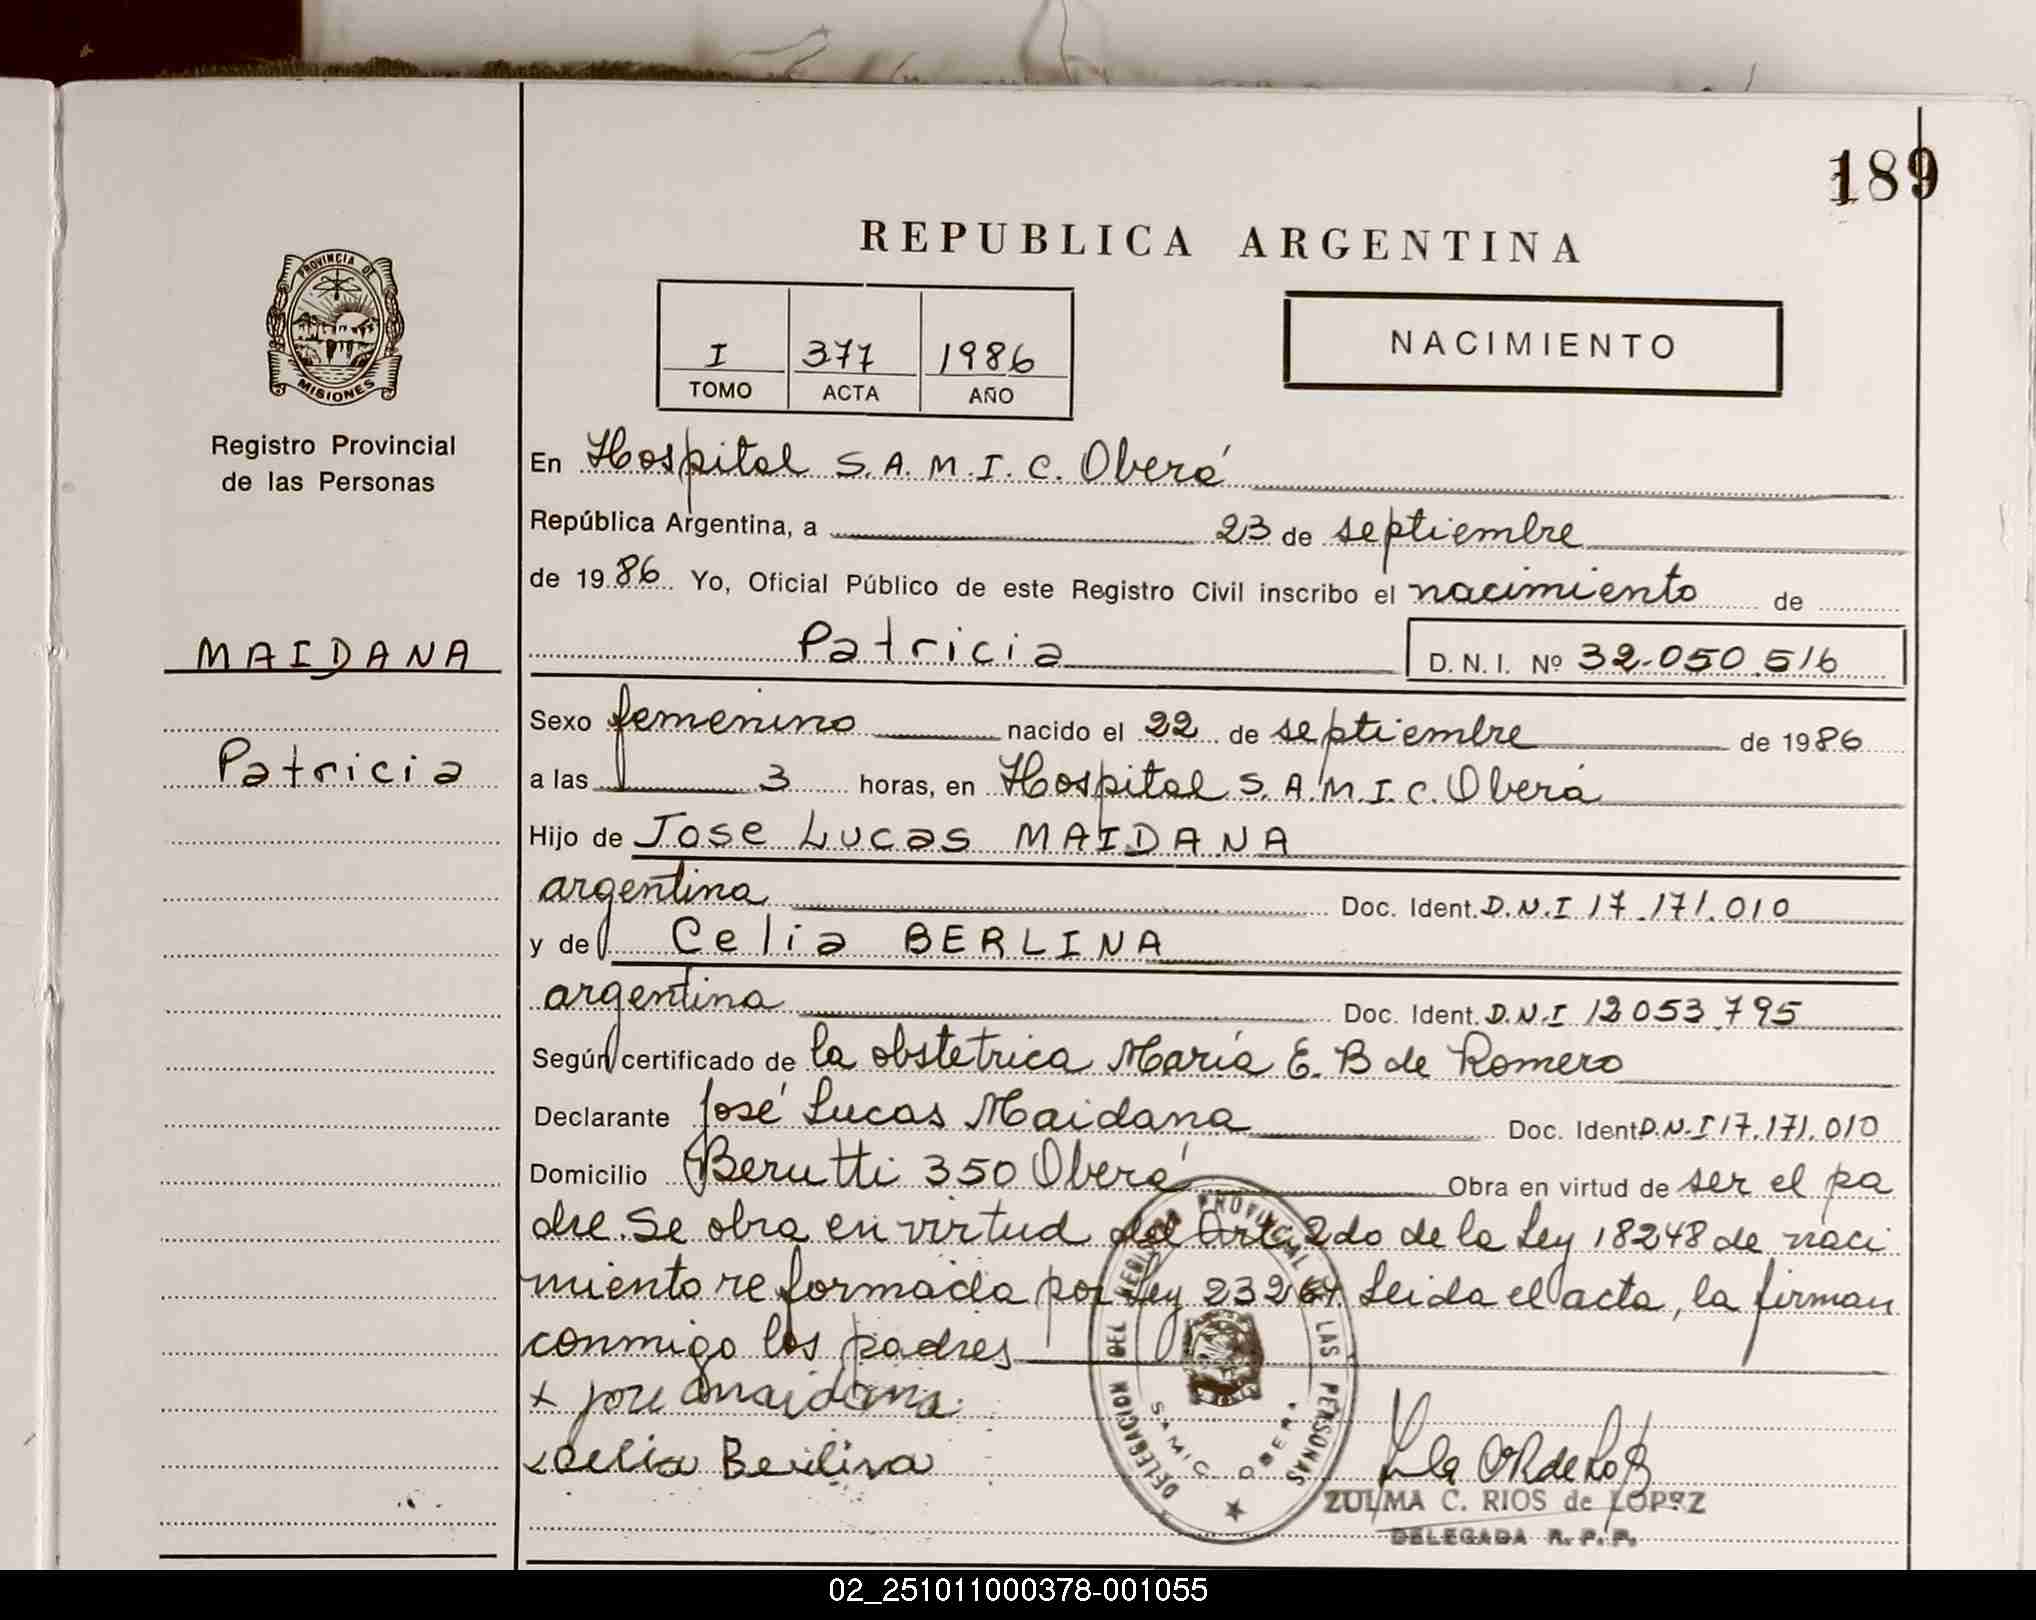 189
REPUBLICA ARGENTINA
PROVINCIA DE
MISIONES
Registro Provincial
de las Personas
I 377 1986
TOMO ACTA AÑO
NACIMIENTO
En Hospital S.A.M.I.C. Oberá
República Argentina, a 23 de septiembre
de 1986 Yo, Oficial Público de este Registro Civil inscribo el nacimiento de
MAIDANA
Patricia D.N.I. Nº 32.050.516
Sexo femenino nacido el 22 de septiembre de 1986
Patricia
a las 3 horas, en Hospital S.A.M.I.C. Oberá
Hijo de Jose Lucas MAIDANA
argentina Doc. Ident. D.N.I 17.171.010
y de Celia BERLINA
argentina Doc. Ident. D.N.I 12053.795
Según certificado de la obstetrica María E. B de Romero
Declarante José Lucas Maidana Doc. Ident D.N.I 17.171.010
Domicilio Berutti 350 Oberá Obra en virtud de ser el pa
dre. Se obra en virtud del Art. 2do de la Ley 18248 de naci
miento reformada por Ley 23264. Leida el acta, la firman
conmigo los padres
x jose maidana
x Celia Berlina
DELEGACION DEL REGISTRO PROVINCIAL DE LAS PERSONAS
SAMIC OBERA
ZULMA C. RIOS de LOPEZ
DELEGADA R.P.P.
02_251011000378-001055